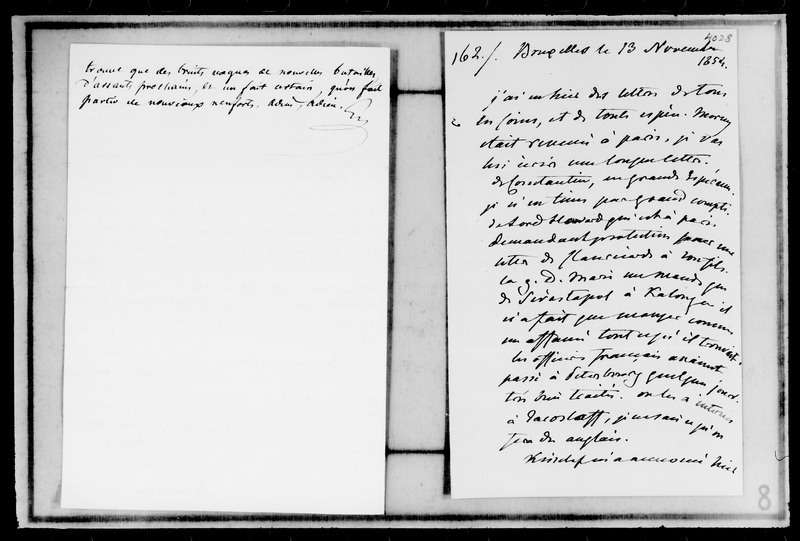 trouve que des bruits vagues de nouvelles batailles
d'assauts prochains, et un fait certain, qu'on fait
partir de nouveaux renforts. Adieu, Adieu.
4028
162./. Bruxelles le 13 Novembre
1854.
j'ai eu hier des lettres de tous
les coins, et de toute espèce. Morny
était revenu à paris, je vais
lui écrire une longue lettre.
de Constantin, en grande
je n'en tiens pas grand compte.
de Lord Howard qui est à paris
demandant protection pour une
lettre de à son fils.
la g. D. Marie me mande que
de Sévastopol à Kalouga il
n'a fait que manger comme
un affamé tout ce qu'il trouvait.
les officiers français avaient
passé à Petersbourg quelques jours
très bien traités. on les a internés
à Jaroslaff, je ne sais ce qu'on
fera des anglais.
Kisseleff m'a annoncé hier
8